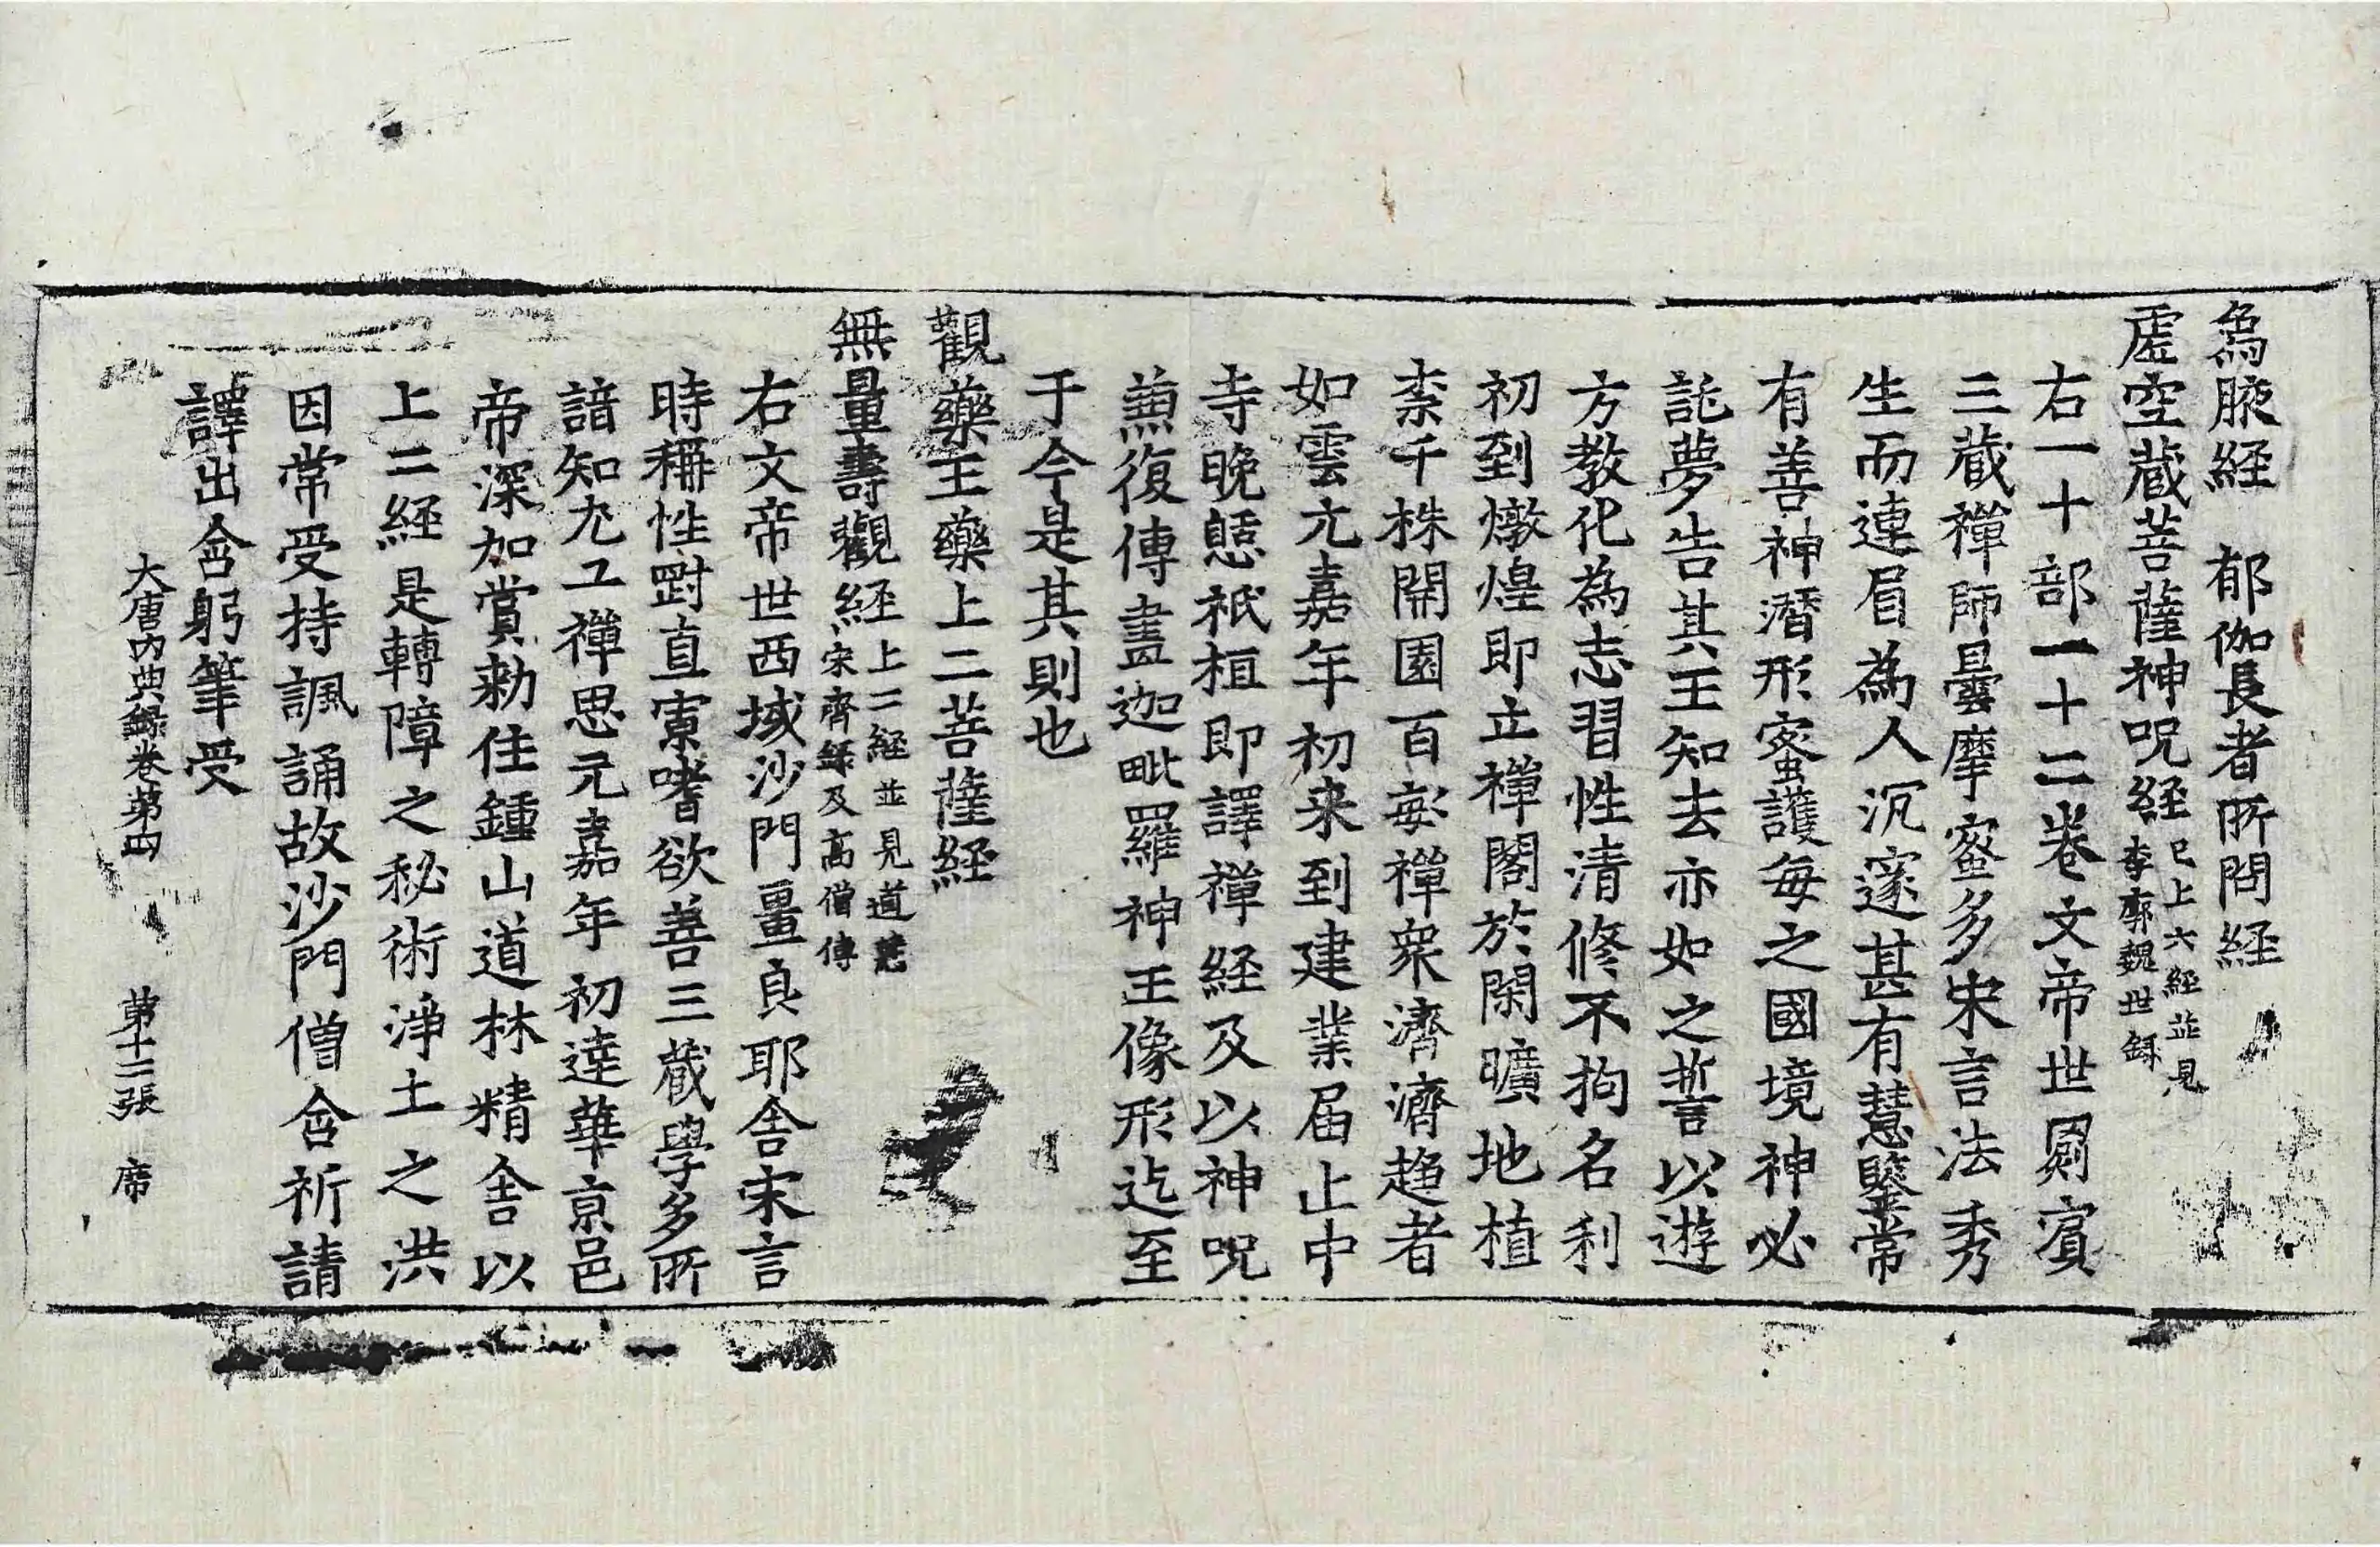 為腋經　郁伽長者所問經
虛空蔵菩薩神呪経已上六經並見李廓魏世録
右一十部一十二卷文帝世罽賓
三蔵禪師曇摩蜜多宋言法秀
生而連眉為人沉邃甚有慧鑒常
有善神潛形蜜護每之國境神必
託夢告其王知去亦如之誓以遊
方教化為志習性清修不拘名利
初到燉煌即立禪閣於閑曠地植
柰千株開園百畝禪衆濟濟趍者
如雲元嘉年初来到建業届止中
寺晚憇祇桓即譯禪経及以神呪
兼復傳畫迦毗羅神王像形迄至
于今是其則也
觀藥王藥上二菩薩経
無量壽觀經上二經並見道慧宋齊録及高僧傳
右文帝世西域沙門畺良耶舍宋言
時稱性剛直寡嗜欲善三蔵學多所
諳知尤工禪思元嘉年初達華京邑
帝深加賞勑住鍾山道林精舍以
上二經是轉障之秘術淨土之洪
因常受持諷誦故沙門僧含祈請
譯出含躬筆受
大唐內典録卷第四　第十二張　席